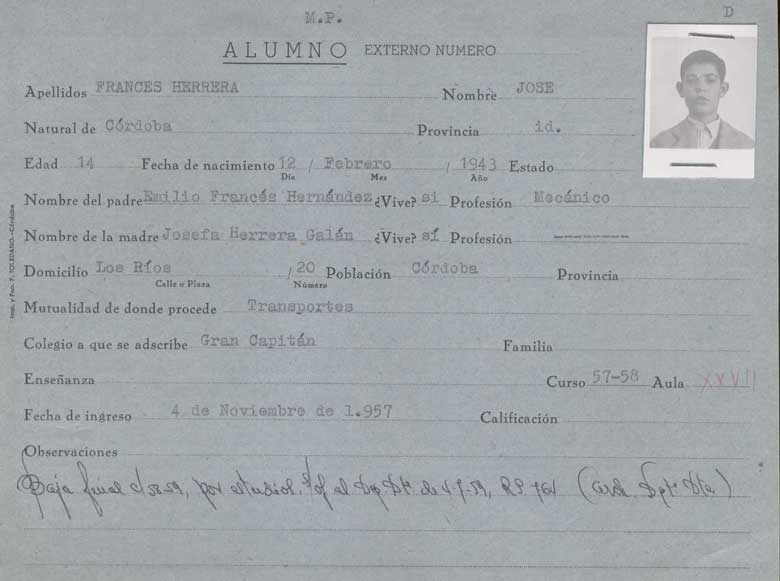 M.P. D
ALUMNO EXTERNO NUMERO
Apellidos FRANCES HERRERA Nombre JOSE
Natural de Córdoba Provincia id.
Edad 14 Fecha de nacimiento 12 / Febrero / 1943 Estado
Día Mes Año
Nombre del padre Emilio Francés Hernández ¿Vive? si Profesión Mecánico
Nombre de la madre Josefa Herrera Galán ¿Vive? sí Profesión
Domicilio Los Ríos / 20 Población Córdoba Provincia
Calle o Plaza Número
Mutualidad de donde procede Transportes
Colegio a que se adscribe Gran Capitán Familia
Enseñanza Curso 57-58 Aula XXVII
Fecha de ingreso 4 de Noviembre de 1.957 Calificación
Observaciones
Baja final c/58-59, por estudios, of al de 4-7-59, RS 764
Imp. y Pap. F. TOLEDANO.-Córdoba